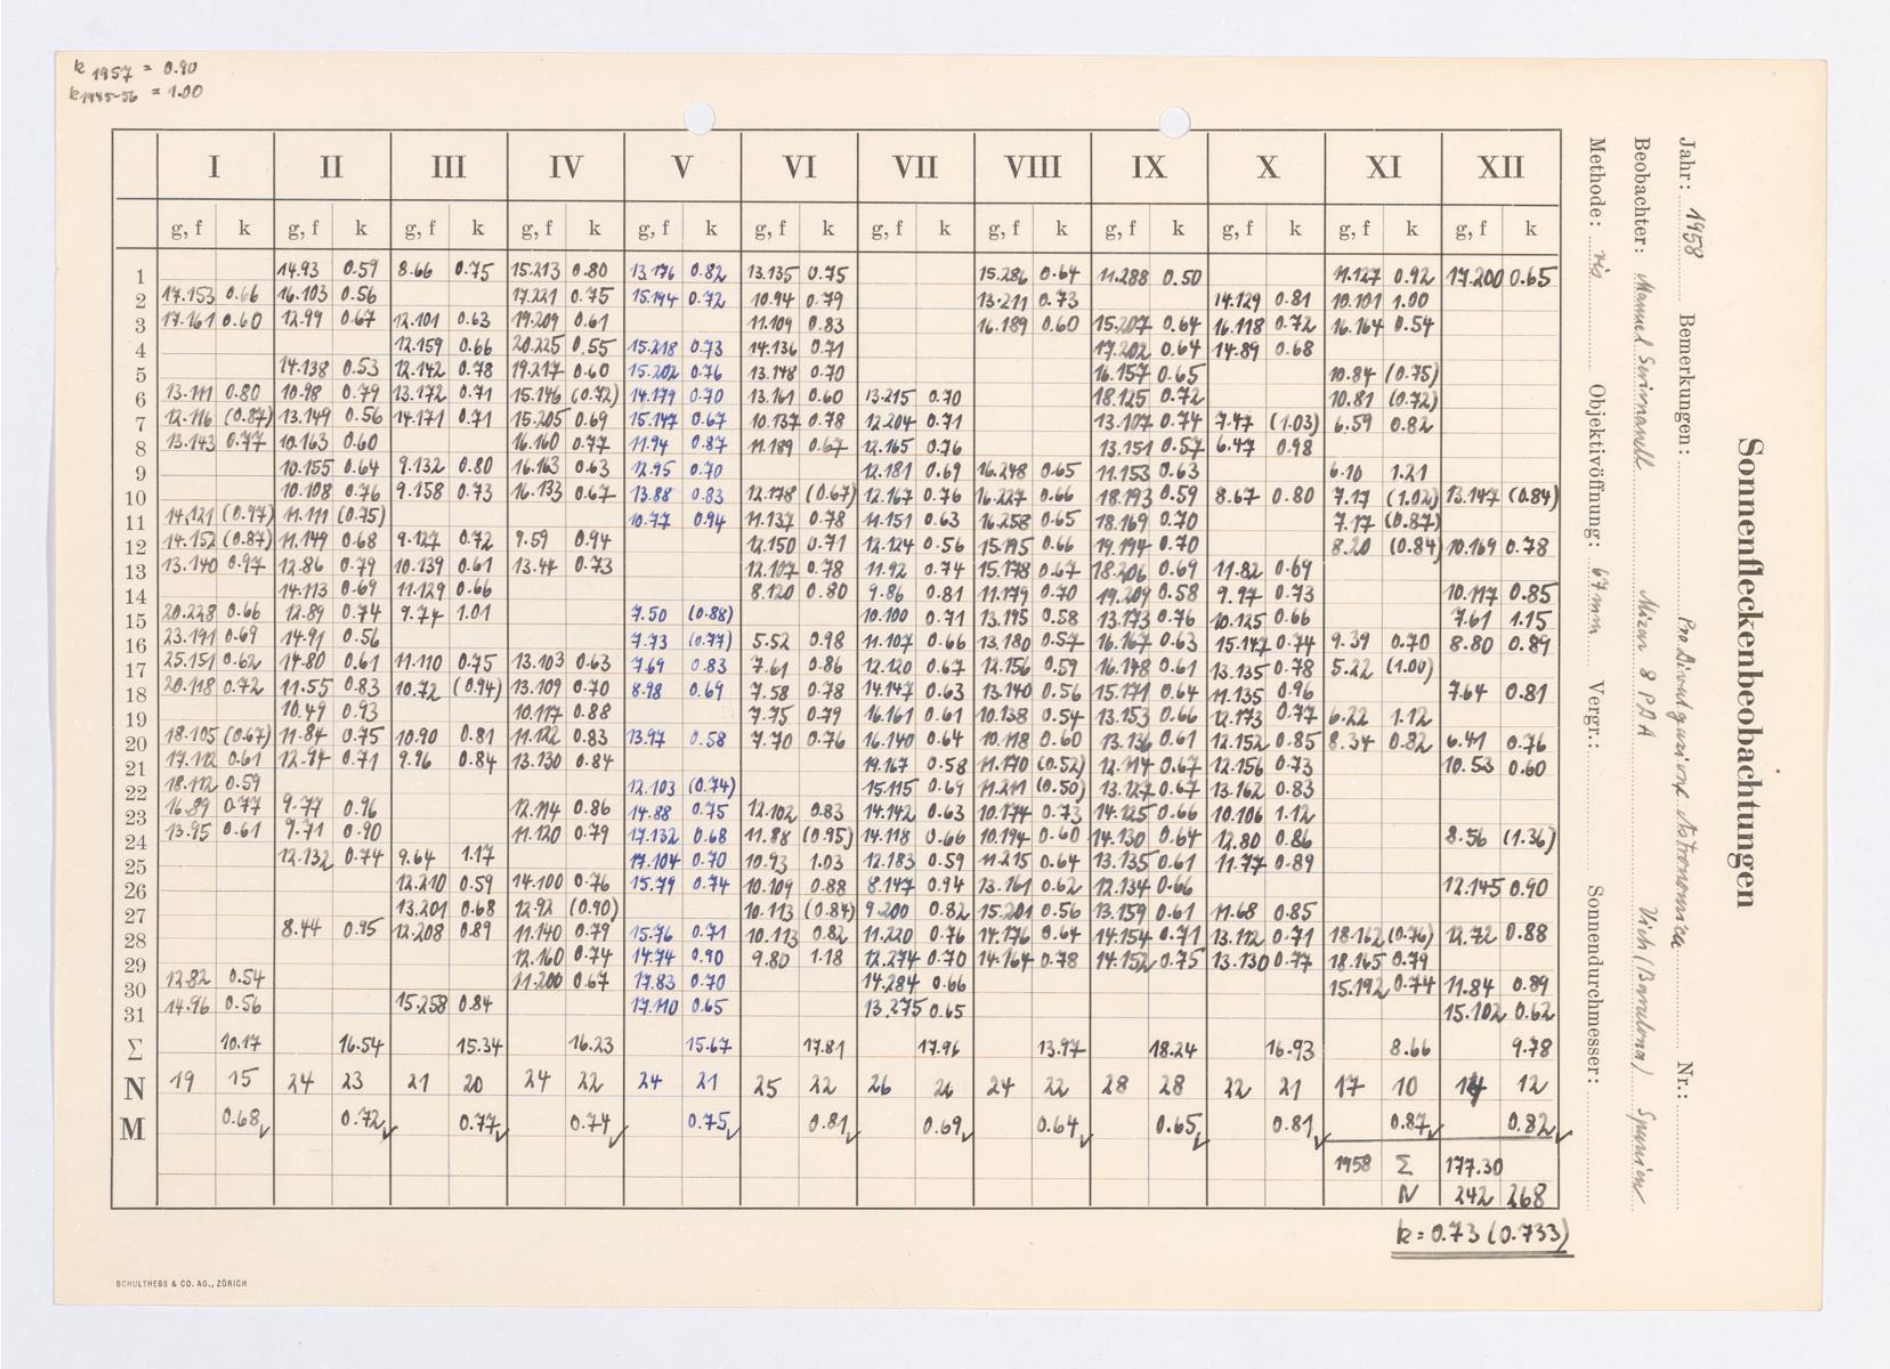 k 1957 = 0.90
k 1945-56 = 1.00
I II III IV V VI VII VIII IX X XI XII
g, f k g, f k g, f k g, f k g, f k g, f k g, f k g, f k g, f k g, f k g, f k g, f k
1 14.93 0.59 8.66 0.75 15.213 0.80 13.176 0.82 13.135 0.75 15.286 0.64 11.288 0.50 11.127 0.92 17.200 0.65
2 17.153 0.66 16.103 0.56 17.221 0.75 15.194 0.72 10.94 0.79 13.211 0.73 14.129 0.81 10.101 1.00
3 17.161 0.60 12.99 0.67 12.101 0.63 19.209 0.61 11.109 0.83 16.189 0.60 15.207 0.64 16.118 0.72 16.164 0.54
4 12.159 0.66 20.225 0.55 15.218 0.73 14.136 0.71 17.202 0.64 14.89 0.68
5 14.138 0.53 12.142 0.78 19.217 0.60 15.202 0.76 13.148 0.70 16.157 0.65 10.84 (0.75)
6 13.111 0.80 10.98 0.79 13.172 0.71 15.146 (0.72) 14.179 0.70 13.161 0.60 13.215 0.70 18.125 0.72 10.81 (0.72)
7 12.116 (0.87) 13.149 0.56 14.171 0.71 15.205 0.69 15.147 0.67 10.137 0.78 12.204 0.71 13.107 0.74 7.47 (1.03) 6.59 0.82
8 13.143 0.77 10.163 0.60 16.160 0.77 11.94 0.87 11.189 0.67 12.165 0.76 13.151 0.57 6.47 0.98
9 10.155 0.64 9.132 0.80 16.163 0.63 12.95 0.70 12.181 0.69 16.248 0.65 11.153 0.63 6.10 1.21
10 10.108 0.76 9.158 0.73 16.133 0.67 13.88 0.83 12.178 (0.67) 12.167 0.76 16.227 0.66 18.193 0.59 8.67 0.80 7.17 (1.02) 13.147 (0.84)
11 14.121 (0.97) 11.111 (0.75) 10.77 0.94 11.137 0.78 11.151 0.63 16.258 0.65 18.169 0.70 7.17 (0.87)
12 14.152 (0.87) 11.149 0.68 9.127 0.72 9.59 0.94 12.150 0.71 12.124 0.56 15.195 0.66 19.194 0.70 8.20 (0.84) 10.169 0.78
13 13.140 0.97 12.86 0.79 10.139 0.61 13.44 0.73 12.107 0.78 11.92 0.74 15.178 0.67 18.206 0.69 11.82 0.69
14 14.113 0.69 11.129 0.66 8.120 0.80 9.86 0.81 11.179 0.70 19.209 0.58 9.97 0.73 10.117 0.85
15 20.228 0.66 12.89 0.74 9.74 1.01 7.50 (0.88) 10.100 0.71 13.195 0.58 13.173 0.76 10.125 0.66 7.61 1.15
16 23.191 0.69 14.91 0.56 7.73 (0.77) 5.52 0.98 11.107 0.66 13.180 0.57 16.167 0.63 15.147 0.74 9.39 0.70 8.80 0.89
17 25.151 0.62 14.80 0.61 11.110 0.75 13.103 0.63 7.69 0.83 7.61 0.86 12.120 0.67 12.156 0.59 16.148 0.61 13.135 0.78 5.22 (1.00)
18 20.118 0.72 11.55 0.83 10.72 (0.94) 13.109 0.70 8.98 0.69 7.58 0.78 14.147 0.63 13.140 0.56 15.171 0.64 11.135 0.96 7.64 0.81
19 10.49 0.93 10.117 0.88 7.75 0.79 16.161 0.61 10.138 0.54 13.153 0.66 12.173 0.77 6.22 1.12
20 18.105 (0.67) 11.84 0.75 10.90 0.81 11.122 0.83 13.97 0.58 7.70 0.76 16.140 0.64 10.118 0.60 13.136 0.61 12.152 0.85 8.34 0.82 6.41 0.76
21 17.112 0.61 12.94 0.71 9.96 0.84 13.130 0.84 19.167 0.58 11.170 (0.52) 12.114 0.67 12.156 0.73 10.53 0.60
22 18.112 0.59 12.103 (0.74) 15.115 0.69 11.211 (0.50) 13.127 0.67 13.162 0.83
23 16.89 0.77 9.77 0.96 12.114 0.86 14.88 0.75 12.102 0.83 14.142 0.63 10.174 0.73 14.125 0.66 10.106 1.12
24 13.95 0.61 9.71 0.90 11.120 0.79 17.132 0.68 11.88 (0.95) 14.118 0.66 10.194 0.60 14.130 0.64 12.80 0.86 8.56 (1.36)
25 12.132 0.74 9.64 1.17 17.104 0.70 10.93 1.03 12.183 0.59 11.215 0.64 13.135 0.61 11.77 0.89
26 12.210 0.59 14.100 0.76 15.79 0.74 10.109 0.88 8.147 0.94 13.161 0.62 12.134 0.66 12.145 0.90
27 13.201 0.68 12.92 (0.90) 10.113 (0.84) 9.200 0.82 15.201 0.56 13.159 0.61 11.68 0.85
28 8.44 0.95 12.208 0.89 11.140 0.79 15.76 0.71 10.113 0.82 11.220 0.76 14.176 0.64 14.154 0.71 13.112 0.71 18.162 (0.76) 12.72 0.88
29 12.160 0.74 14.74 0.90 9.80 1.18 12.274 0.70 14.164 0.78 14.152 0.75 13.130 0.77 18.165 0.79
30 12.82 0.54 11.200 0.67 17.83 0.70 14.284 0.66 15.192 0.74 11.84 0.89
31 14.96 0.56 15.258 0.84 17.110 0.65 13.275 0.65 15.102 0.62
Σ 10.17 16.54 15.34 16.23 15.67 17.81 17.96 13.97 18.24 16.93 8.66 9.78
N 19 15 24 23 21 20 24 22 24 21 25 22 26 26 24 22 28 28 22 21 17 10 14 12
M 0.68 0.72 0.77 0.74 0.75 0.81 0.69 0.64 0.65 0.81 0.87 0.82
1958 Σ 177.30
N 242 268
k = 0.73 (0.733)
SCHULTHESS & CO. AG., ZÜRICH
Sonnenfleckenbeobachtungen
Jahr: 1958 Bemerkungen: Nr.:
Beobachter: Manuel Mizar 8 PAA Vich (Barcelona) Spanien
Methode: vis Objektivöffnung: 67 mm Vergr.: Sonnendurchmesser: